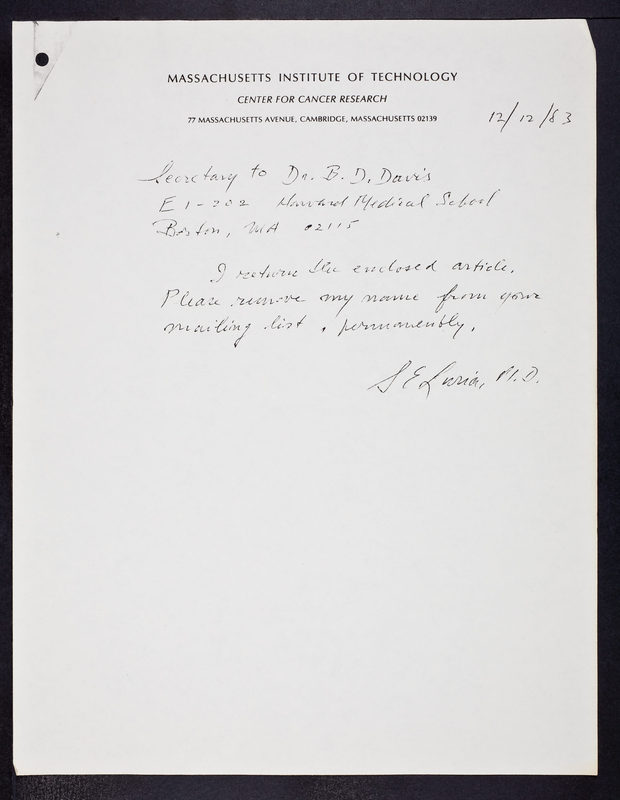 MASSACHUSETTS INSTITUTE OF TECHNOLOGY
CENTER FOR CANCER RESEARCH
77 MASSACHUSETTS AVENUE, CAMBRIDGE, MASSACHUSETTS 02139
12/12/83
Secretary to Dr. B. D. Davis
E 1-202 Harvard Medical School
Boston, MA 02115
I return the enclosed article.
Please remove my name from your
mailing list, permanently.
S E Luria, Ph.D.